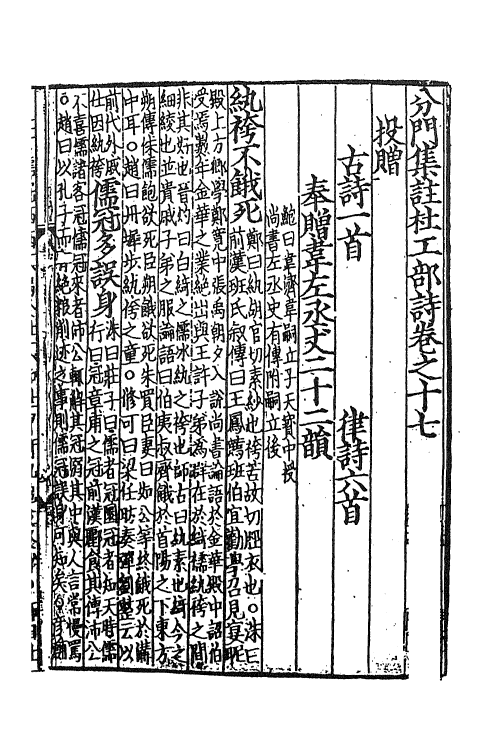 分門集註杜工部詩卷之十七
投贈
古詩一首 律詩六首
奉贈韋左丞丈二十二韻
鮑曰韋濟韋嗣立子天寶中授
尚書左丞史有傳附嗣立後
紈袴不餓死
鄭曰紈胡官切素紗也袴苦故切脛衣也○洙曰
前漢班氏叙傳曰王鳳薦班伯宜勸學召見宴昵
殿上方嚮學鄭寛中張禹朝夕入說尚書論語於金華殿中詔伯
受焉數年金華之業絶出與王許子弟為群在於綺襦紈袴之間
非其好也晉灼曰白綺之襦冰紈之袴也師古曰紈素也綺今之
細綾也並貴戚子弟之服論語曰伯夷叔齊餓於首陽之下東方
朔傳侏儒飽欲死臣朔餓欲死朱買臣妻曰如公等終餓死於溝
中耳○趙曰
步紈袴之童○修可曰梁任昉奏彈劉整云以
前代外戚
仕因紈袴
儒冠多誤身
洙曰莊子曰儒者冠圜冠者知天時儒
行曰冠章甫之冠前漢酈食其傳沛公
不喜儒諸客冠儒冠來者沛公輒解其冠溺其中與人言常慢罵
○趙曰以孔子而有絶粮削迹之事則儒冠誤身可知矣